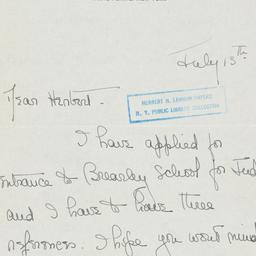 July 13th
Dear Herbert -
HERBERT H. LEHMAN PAPERS
N. Y. PUBLIC LIBRARY COLLECTION
I have applied for
entrance to Brearley School for
and I have to have three
references. I hope you wont mind